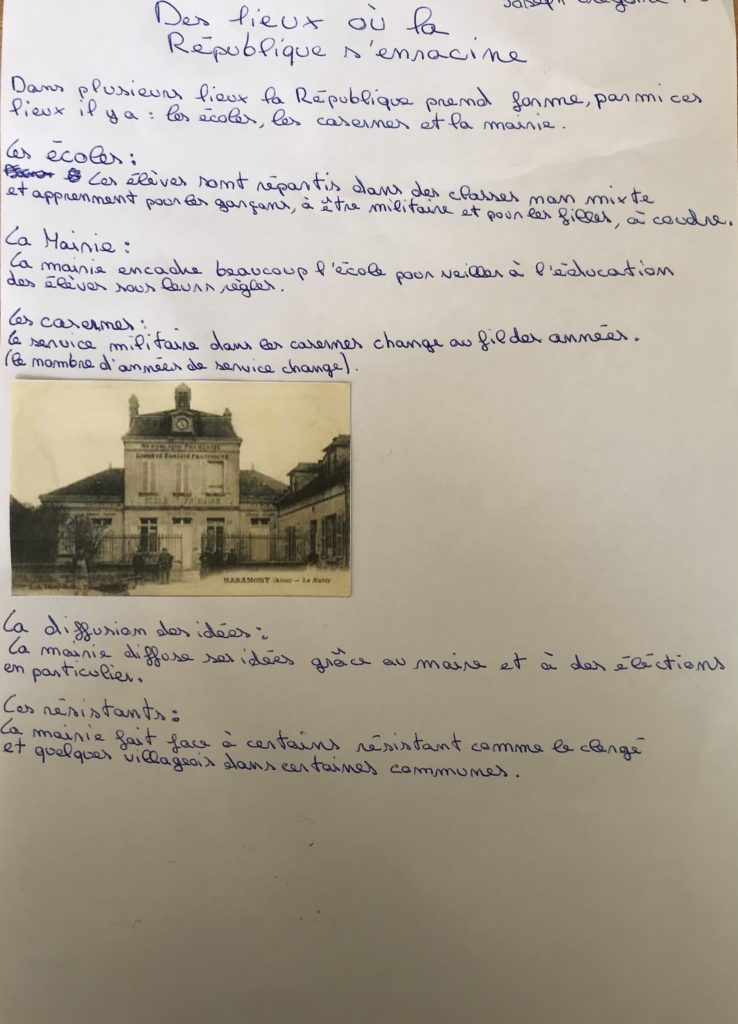 Joseph
Des lieux où la
République s'enracine
Dans plusieurs lieux la République prend forme, parmi ces
lieux il y a : les écoles, les casernes et la mairie.
Les écoles :
Les élèves sont répartis dans des classes non mixte
et apprennent pour les garçons, à être militaire et pour les filles, à coudre.
La Mairie :
La mairie encadre beaucoup l'école pour veiller à l'éducation
des élèves sous leurs règles.
Les casernes :
Le service militaire dans les casernes change au fil des années.
(le nombre d'années de service change).
REPUBLIQUE FRANÇAISE
LIBERTÉ EGALITÉ FRATERNITÉ
ECOLE PRIMAIRE
HARAMONT (Aisne) — La Mairie
La diffusion des idées :
La mairie diffuse ses idées grâce au maire et à des éléctions
en particulier.
Les résistants :
La mairie fait face à certains résistant comme le clergé
et quelques villageois dans certaines communes.